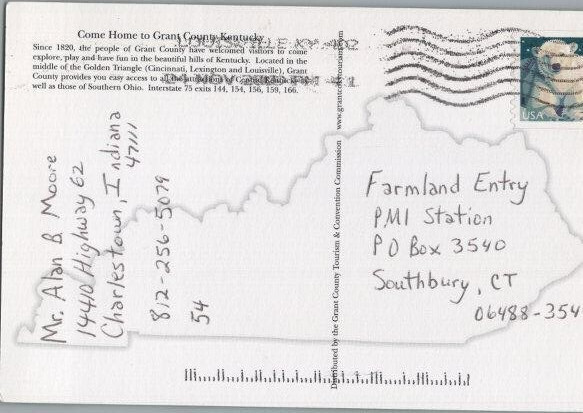 Come Home to Grant County Kentucky
Since 1820, the people of Grant County have welcomed visitors to come
explore, play and have fun in the beautiful hills of Kentucky. Located in the
middle of the Golden Triangle (Cincinnati, Lexington and Louisville), Grant
County provides you easy access to all
well as those of Southern Ohio. Interstate 75 exits 144, 154, 156, 159, 166.
LOUISVILLE KY 402
04 NOV
Mr. Alan B Moore
14410 Highway 62
Charlestown, Indiana
47111
812-256-5079
54
Distributed by the Grant County Tourism & Convention Commission www.grantcountytourism.com
USA
Farmland Entry
PMI Station
PO Box 3540
Southbury, CT
06488-354